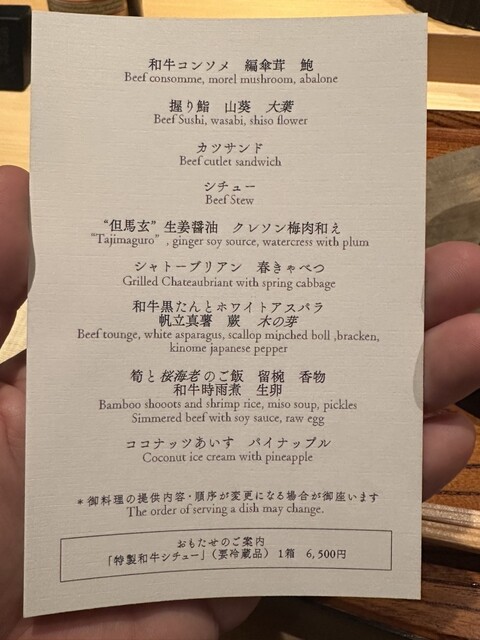 和牛コンソメ　編傘茸　鮑
Beef consomme, morel mushroom, abalone
握り鮨　山葵　大葉
Beef Sushi, wasabi, shiso flower
カツサンド
Beef cutlet sandwich
シチュー
Beef Stew
“但馬玄”生姜醤油　クレソン梅肉和え
“Tajimaguro” , ginger soy source, watercress with plum
シャトーブリアン　春きゃべつ
Grilled Chateaubriant with spring cabbage
和牛黒たんとホワイトアスパラ
帆立真薯　蕨　木の芽
Beef tounge, white asparagus, scallop minched boll ,bracken,
kinome japanese pepper
筍と桜海老のご飯　留椀　香物
和牛時雨煮　生卵
Bamboo shooots and shrimp rice, miso soup, pickles
Simmered beef with soy sauce, raw egg
ココナッツあいす　パイナップル
Coconut ice cream with pineapple
＊御料理の提供内容・順序が変更になる場合が御座います
The order of serving a dish may change.
おもたせのご案内
「特製和牛シチュー」（要冷蔵品）１箱　6,500円